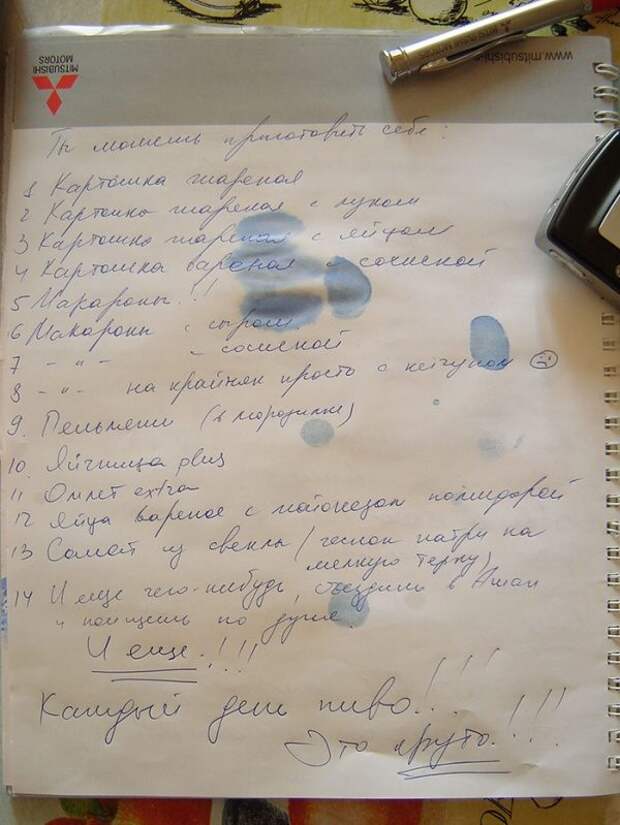 MITSUBISHI
MOTORS
www.mitsubishi
MITSUBISHI MOTORS
Ты можешь приготовить себе:
1 Картошка жареная
2 Картошка жареная с луком
3 Картошка жареная с яйцом
4 Картошка вареная с сосиской
5 Макароны!!!
6 Макароны с сыром
7 -"- с сосиской
8 -"- на крайняк просто с кетчупом ☹
9. Пельмени (в морозилке)
10. Яичница plus
11 Омлет extra
12 Яйца вареное с майонезом помидорой
13 Салат из свеклы (чеснок натри на
мелкую терку)
14 И еще чего-нибудь, съездишь в Ашан
и поищешь по душе.
И еще!!!
Каждый день пиво!!!
Это круто!!!!